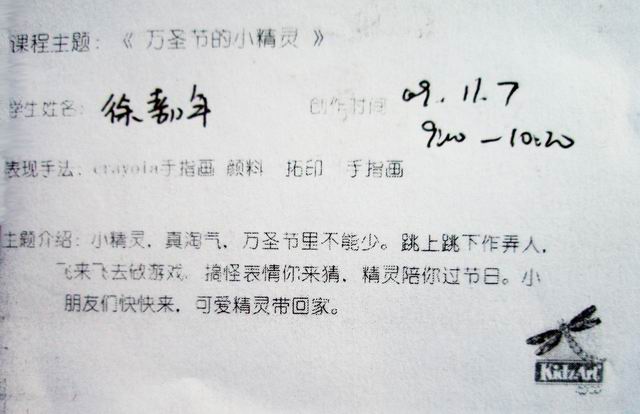 课程主题：《 万圣节的小精灵 》
学生姓名：徐嘉年 创作时间 09.11.7
9:20—10:20
表现手法：crayola手指画 颜料 拓印 手指画
主题介绍：小精灵，真淘气，万圣节里不能少。跳上跳下作弄人，
飞来飞去做游戏，搞怪表情你来猜，精灵陪你过节日。小
朋友们快快来，可爱精灵带回家。
KidzArt